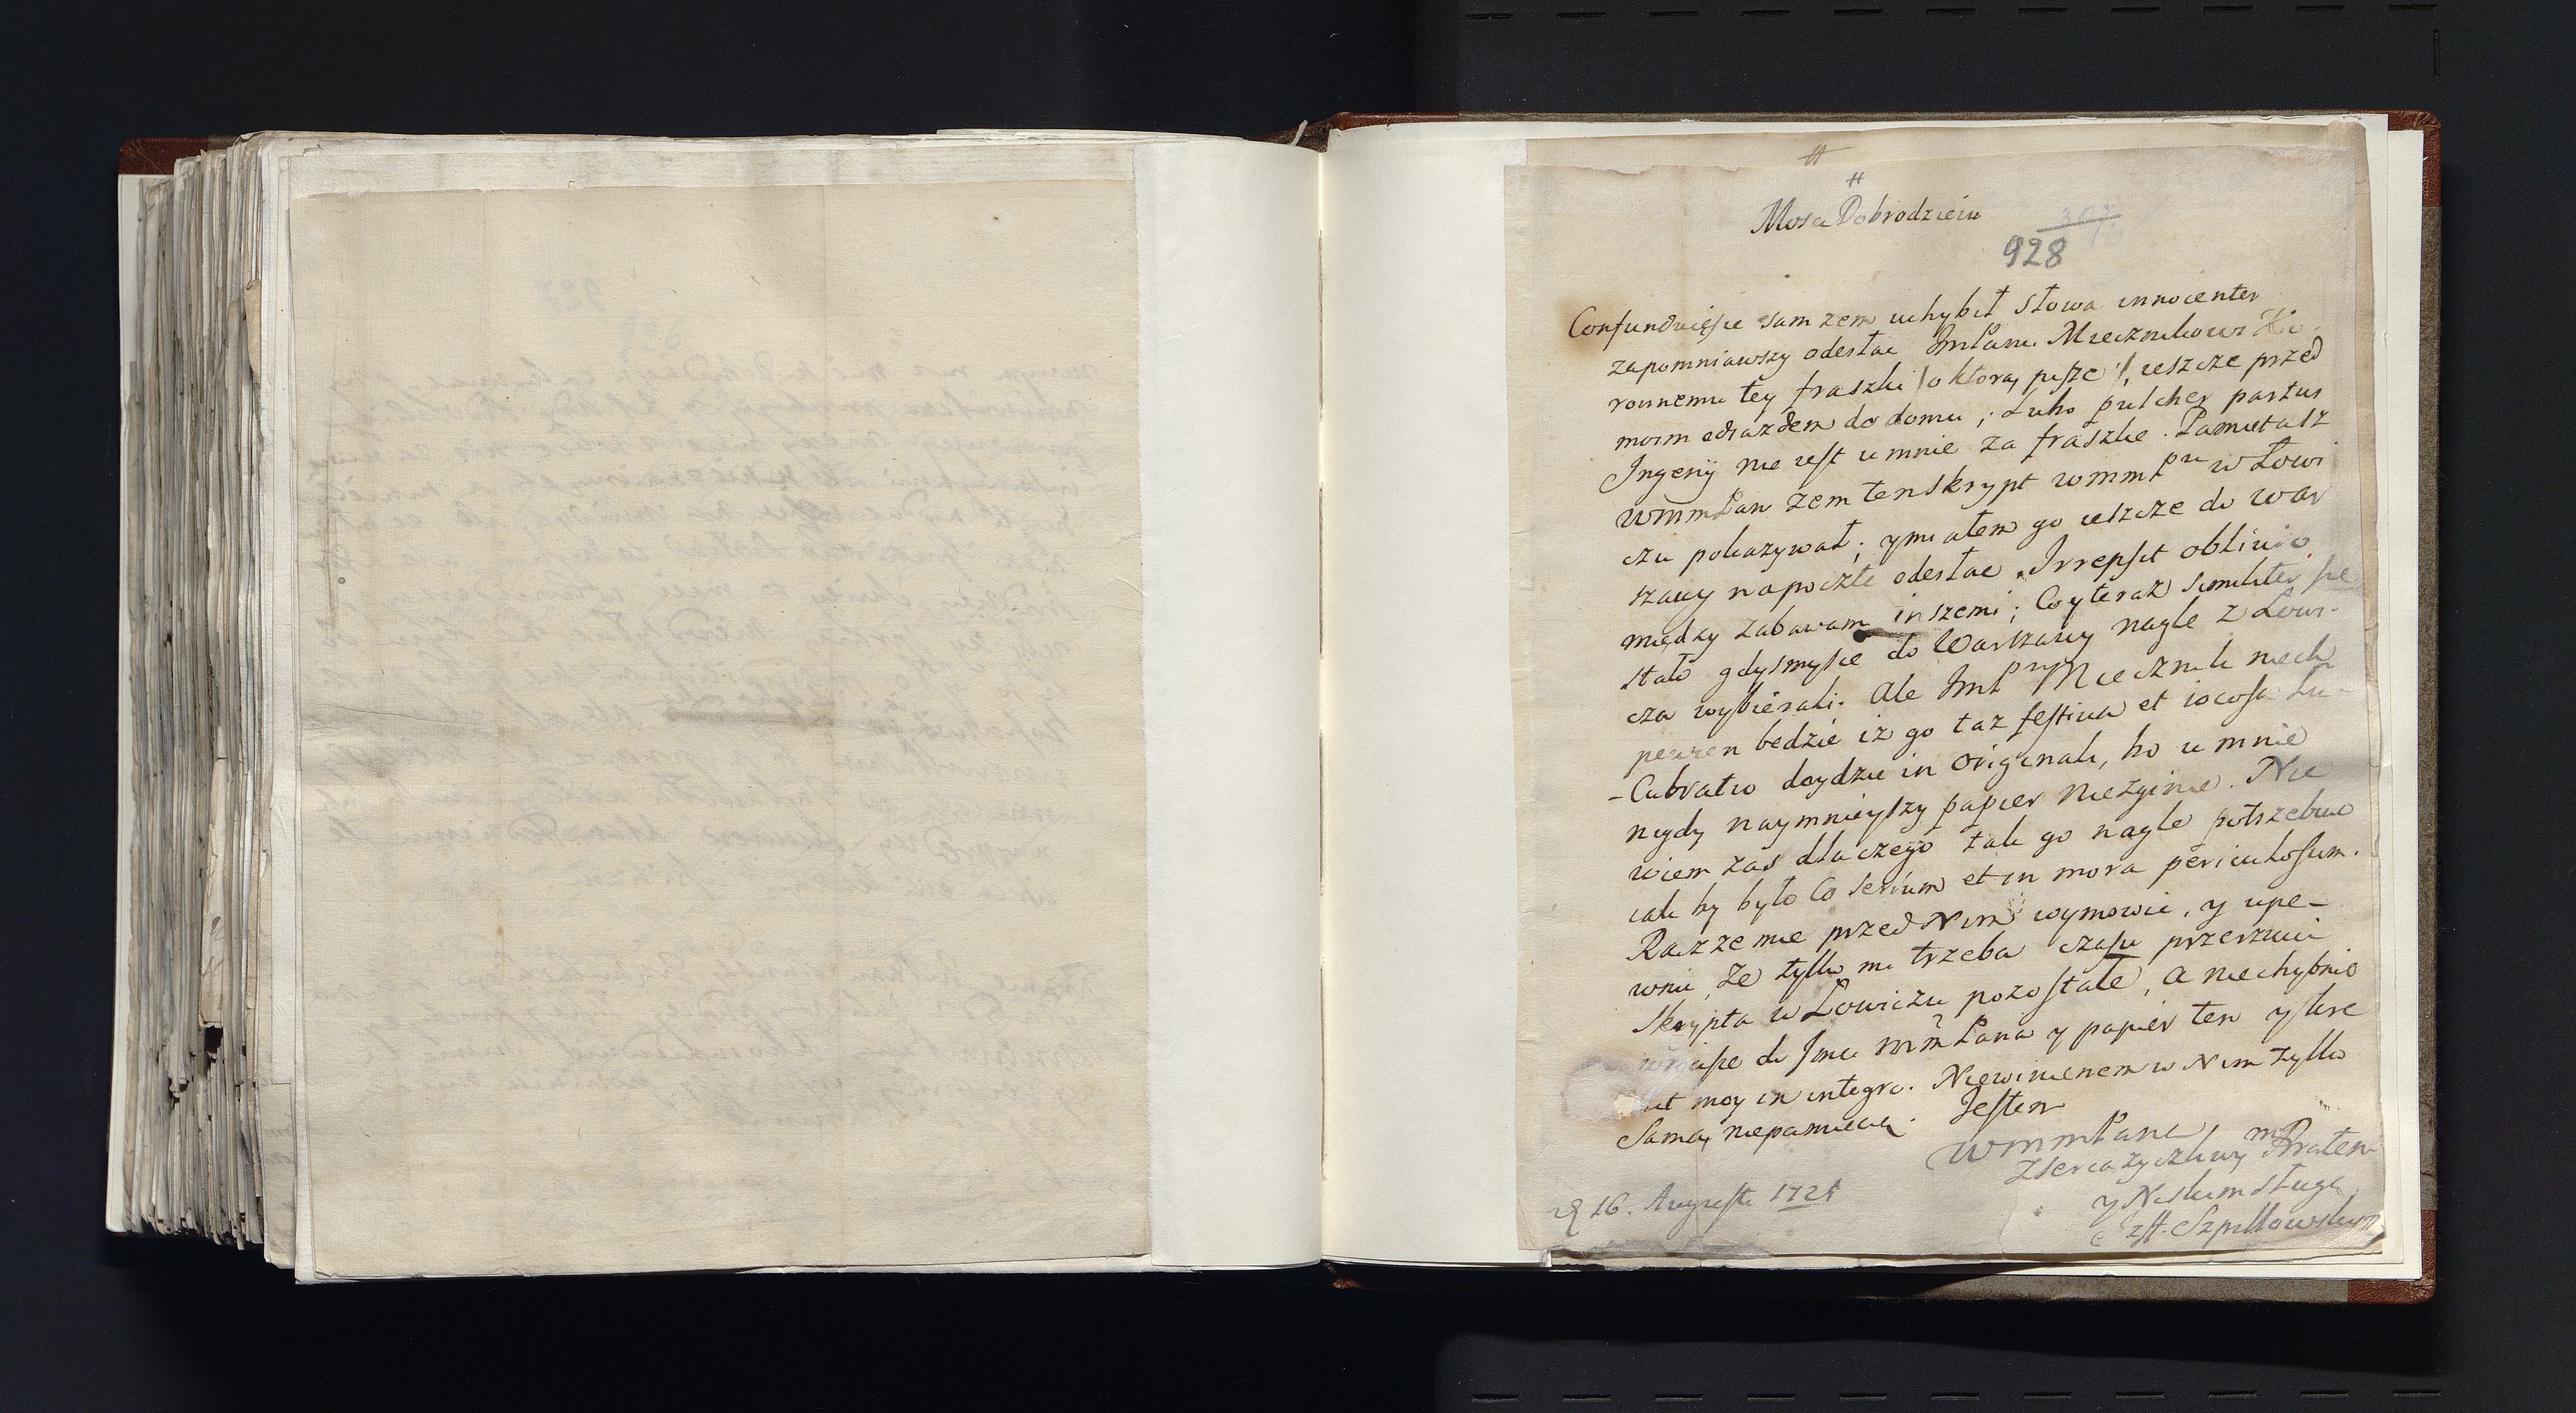 Mosci Dobrodzieiu
928
Confunduięsie sam zem uchybił słowa innocenter
zapomniawszy odesłac ImPanu Miecznikowi Ko-
ronnemu tey fraszki /o ktorą pisze/, ieszcze przed
moim odiazdem do domu; Lubo pulcher partus
Ingenÿ nie iest u mnie za fraszkę. Pamietasz
WmmPan zem ten skrypt WmmPnu w Łowi
czu pokazywał; y miałem go ieszcze do War
szawy na poczte odesłac. Irrepsit oblivio
między zabawami inszemi; Co y teraz similiter sie
stało gdysmysie do Warszawy nagle z Łowi-
cza wybierali. Ale ImPan Miecznik niech
pewien będzie iz go taz festiva et iocosa Lu-
-Cubratio doydzie in Originali, bo u mnie
nigdy naymnieyszy papier niezginie. Nie
wiem zas dlaczego tak go nagle potrzebuie
iak by było co serium et in mora periculosum.
Racz ze mie przed Nim wymowic, y upe-
wnic, ze tylko mi trzeba czasu przerzucic
Skrypta w Łowiczu pozostałe, a niechybnie
wrocisie do Jmci mm Pana y papier ten y kre
dit moy in integro. Niewinienem w Nim tylko
Samą niepamiecią. Jestem
WmmPana mP
z serca zyczliwy Bratem
y Niskim sługą
Szpilkowski
d 16. Augusti 1721